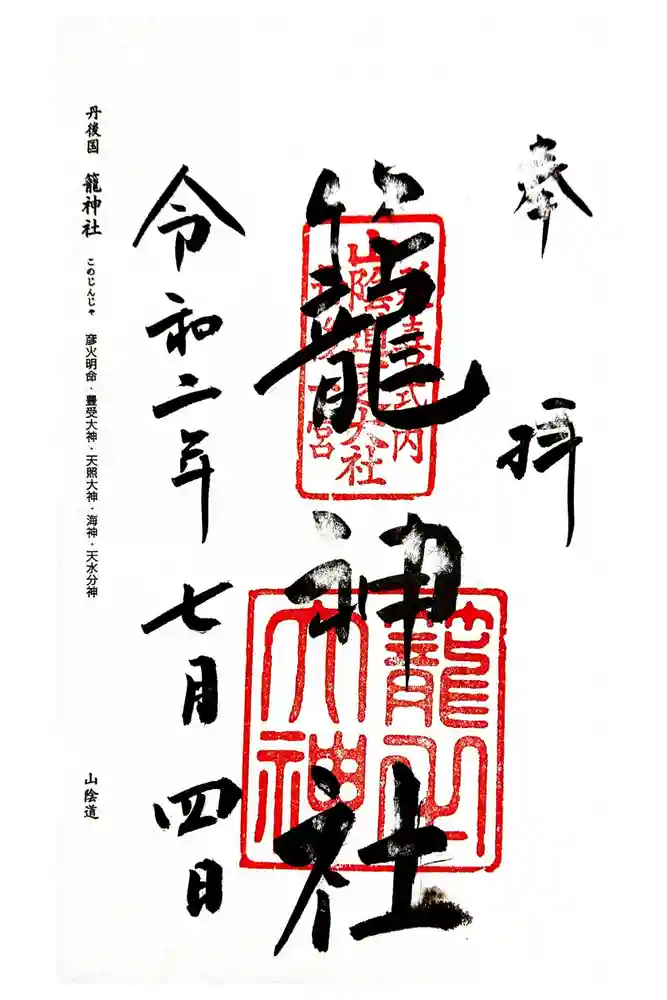 奉拝
延喜式内
山陰道一之大社
丹後一宮
籠神社
籠之大神
令和二年七月四日
丹後国 籠神社 このじんじゃ 彦火明命・豊受大神・天照大神・海神・天水分神 山陰道